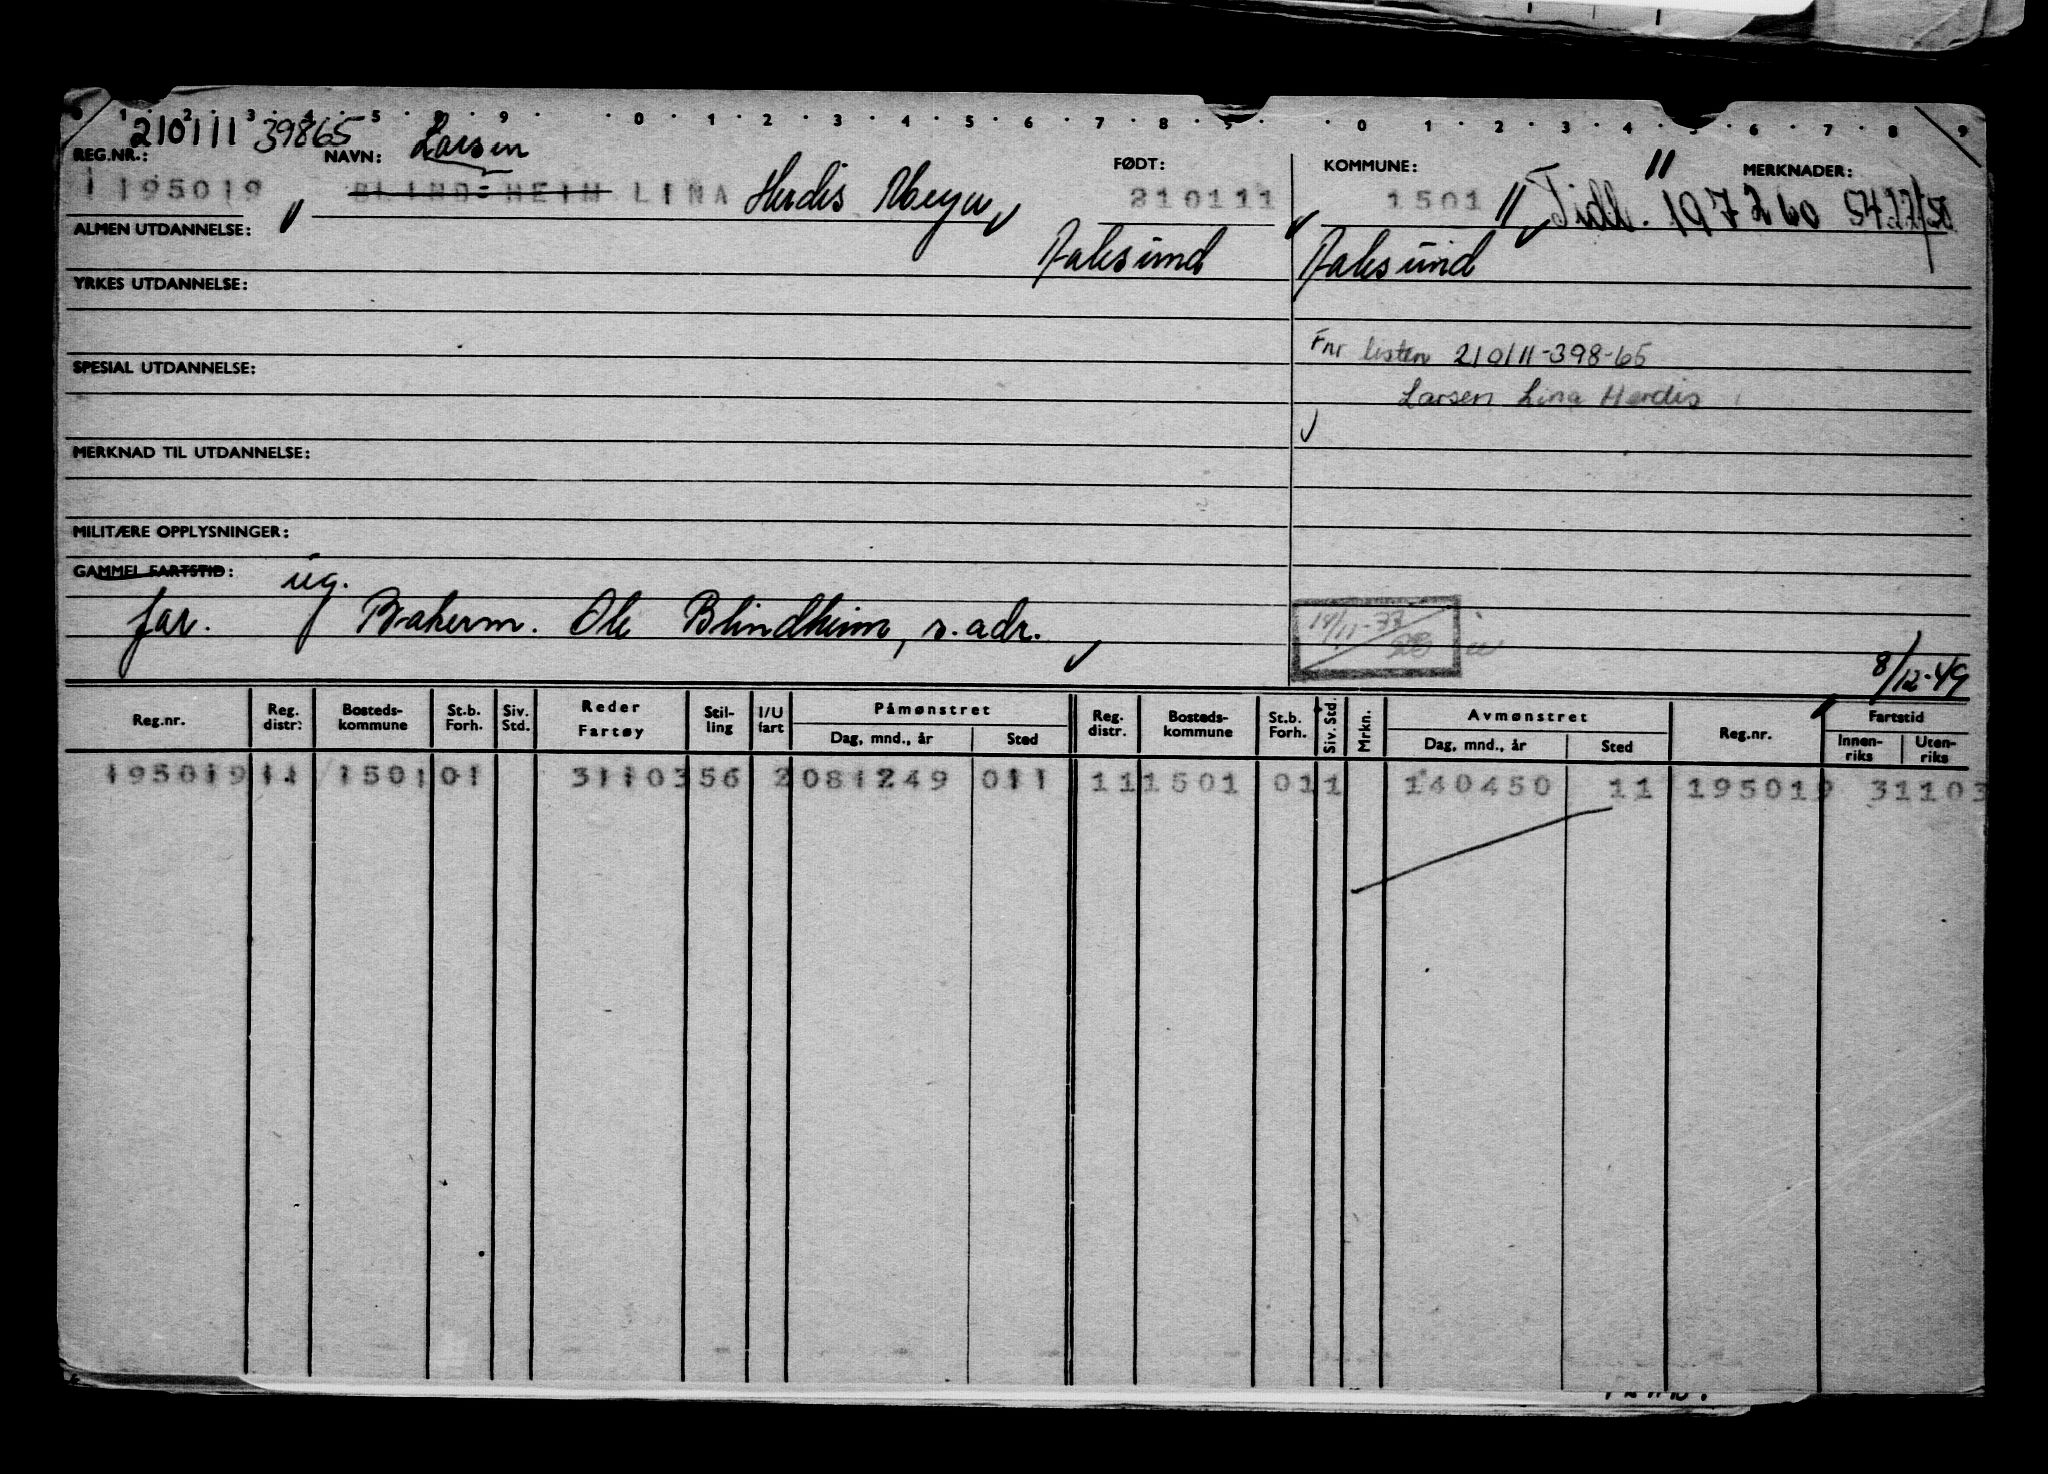 0 1 2 3 4 5 8 9 0 1 2 3 4 5 6 7 8 9 0 1 2 3 4 5 6 7 8 9
210111 39865 Larsen
REG.NR.: NAVN: FØDT: KOMMUNE: MERKNADER:
195019 BLIND-HEIM LINA Herdis Meyer 210111 1501 Tidl.
ALMEN UTDANNELSE:
Aalesund Aalesund
YRKES UTDANNELSE:
Fnr listen 210111-398-65
SPESIAL UTDANNELSE:
Larsen Lina Herdis
MERKNAD TIL UTDANNELSE:
MILITÆRE OPPLYSNINGER:
GAMMEL FARTSTID: ug.
far. Bakerm. Ole Blindheim, s. adr.
14/11-77
8/12-49
Reg.nr. Reg. distr. Bosteds-kommune St.b. Forh. Siv. Std. Reder Fartøy Stil-ling I/U fart Påmønstret Dag, mnd., år Sted Reg. distr. Bosteds-kommune St.b. Forh. Siv. Std. Mrkn. Avmønstret Dag, mnd., år Sted Reg.nr. Fartstid Innen-riks Uten-riks
195019 11 1501 01 31103 56 2 081249 011 11 1501 01 1 140450 11 195019 31103